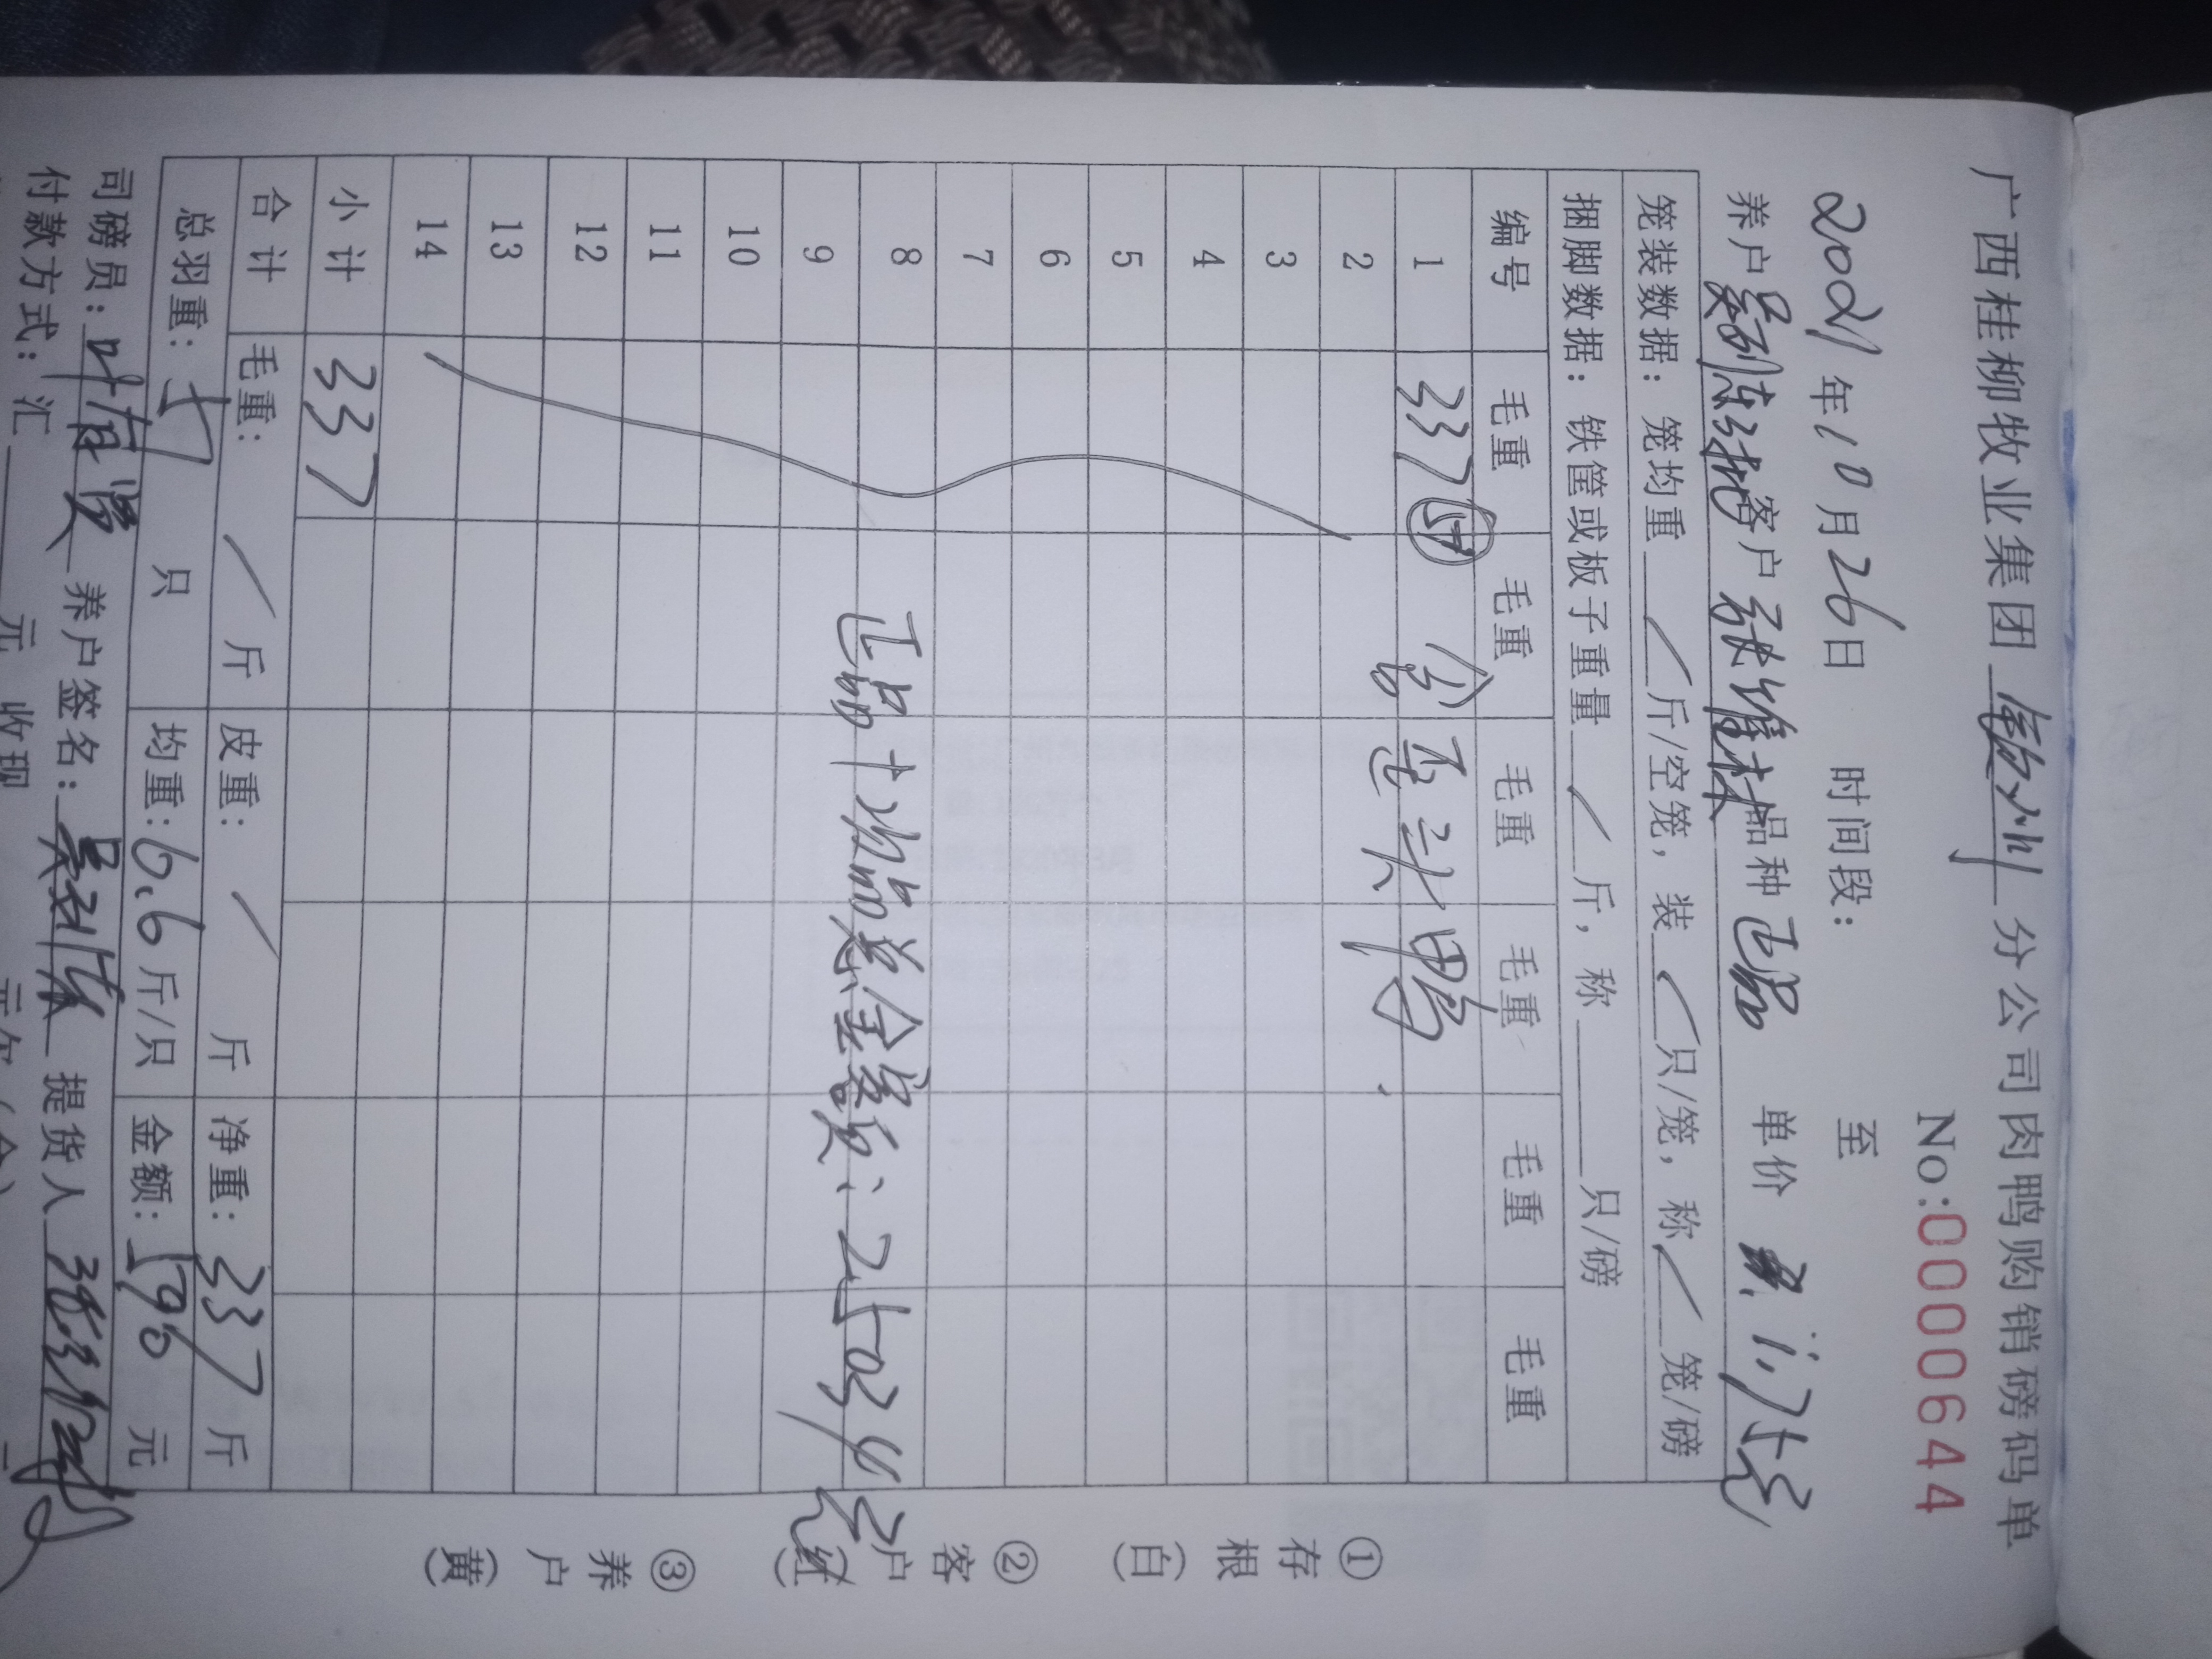 广西桂柳牧业集团 钦州 分公司肉鸭购销磅码单
No:0000644
2021年10月26日 时间段: 至
养户 客户 张维林 品种 正品 单价 1.75元
笼装数据:笼均重 / 斤/空笼,装 / 只/笼,称 / 笼/磅
捆脚数据:铁筐或板子重量 / 斤,称 只/磅
编号 毛重 毛重 毛重 毛重 毛重 毛重
1 337 51 头鸭
2
3
4
5
6
7
8 正品+次品总金额:25034元
9
10
11
12
13
14
小计 337
合计 毛重: / 斤 皮重: / 斤 净重: 337 斤
总羽重: 51 只 均重: 6.6 斤/只 金额: 590 元
司磅员: 养户签名: 提货人
付款方式:汇 元 收现
①存根(白) ②客户(红) ③养户(黄)